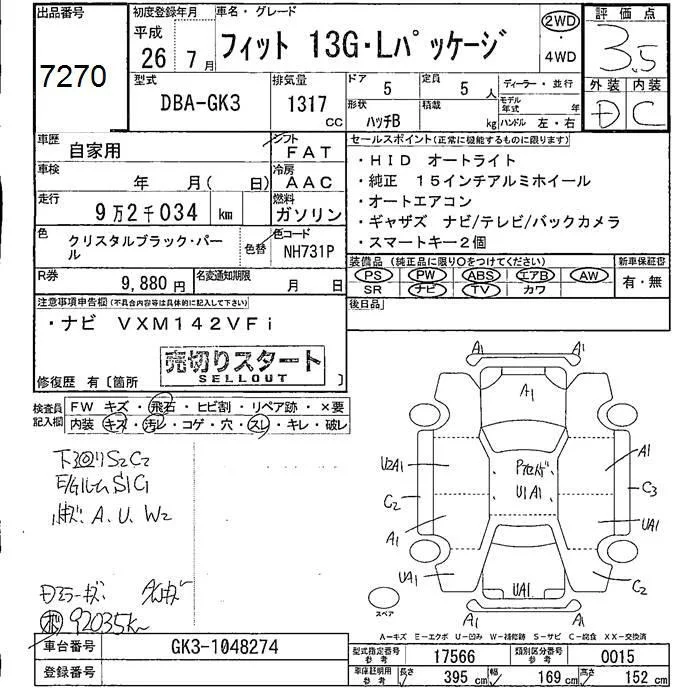 出品番号 初度登録年月 車名・グレード 評価点
7270 平成 26年 7月 フィット 13G・Lパッケージ 2WD ・ 4WD 3.5
型式 排気量 ドア 定員 ディーラー・並行 外装 内装
DBA-GK3 1317 CC 5 5人 モデル年式 年 D C
形状 ハッチB 積載 kg ハンドル 左・右
車歴 自家用 シフト FAT セールスポイント(正常に機能するものに限ります)
車検 年 月( 日) 冷房 AAC ・HID オートライト
・純正 15インチアルミホイール
走行 9万2千034 km 燃料 ガソリン ・オートエアコン
・ギャザズ ナビ/テレビ/バックカメラ
色 クリスタルブラック・パール 色替 色コード NH731P ・スマートキー2個
装備品 (純正品に限り○をつけてください) 新車保証書
R券 9,880円 名変通知期限 月 日 PS PW ABS エアB AW 有・無
SR ナビ TV カワ
注意事項申告欄(不具合内容等は具体的に記入して下さい) 後日品
・ナビ VXM142VFi
売切りスタート
SELLOUT
修復歴 有〔箇所 〕
検査員記入欄 FW キズ・飛石・ヒビ割・リペア跡・×要
内装 キズ・汚レ・コゲ・穴・スレ・キレ・破レ
A1 A1
A1
下回りS2C2
E/GルームS1C1
A.U.W2
U2A1 U1A1 A1
C2 C3
A1 UA1
UA1 UA1 C2
A1 A1
スペア
92035km
A-キズ E-エクボ U-凹み W-補修跡 S-サビ C-腐食 XX-交換済
車台番号 GK3-1048274 型式指定番号 参考 17566 類別区分番号 参考 0015
登録番号 車庫証明用 参考 長さ 395 cm 幅 169 cm 高さ 152 cm